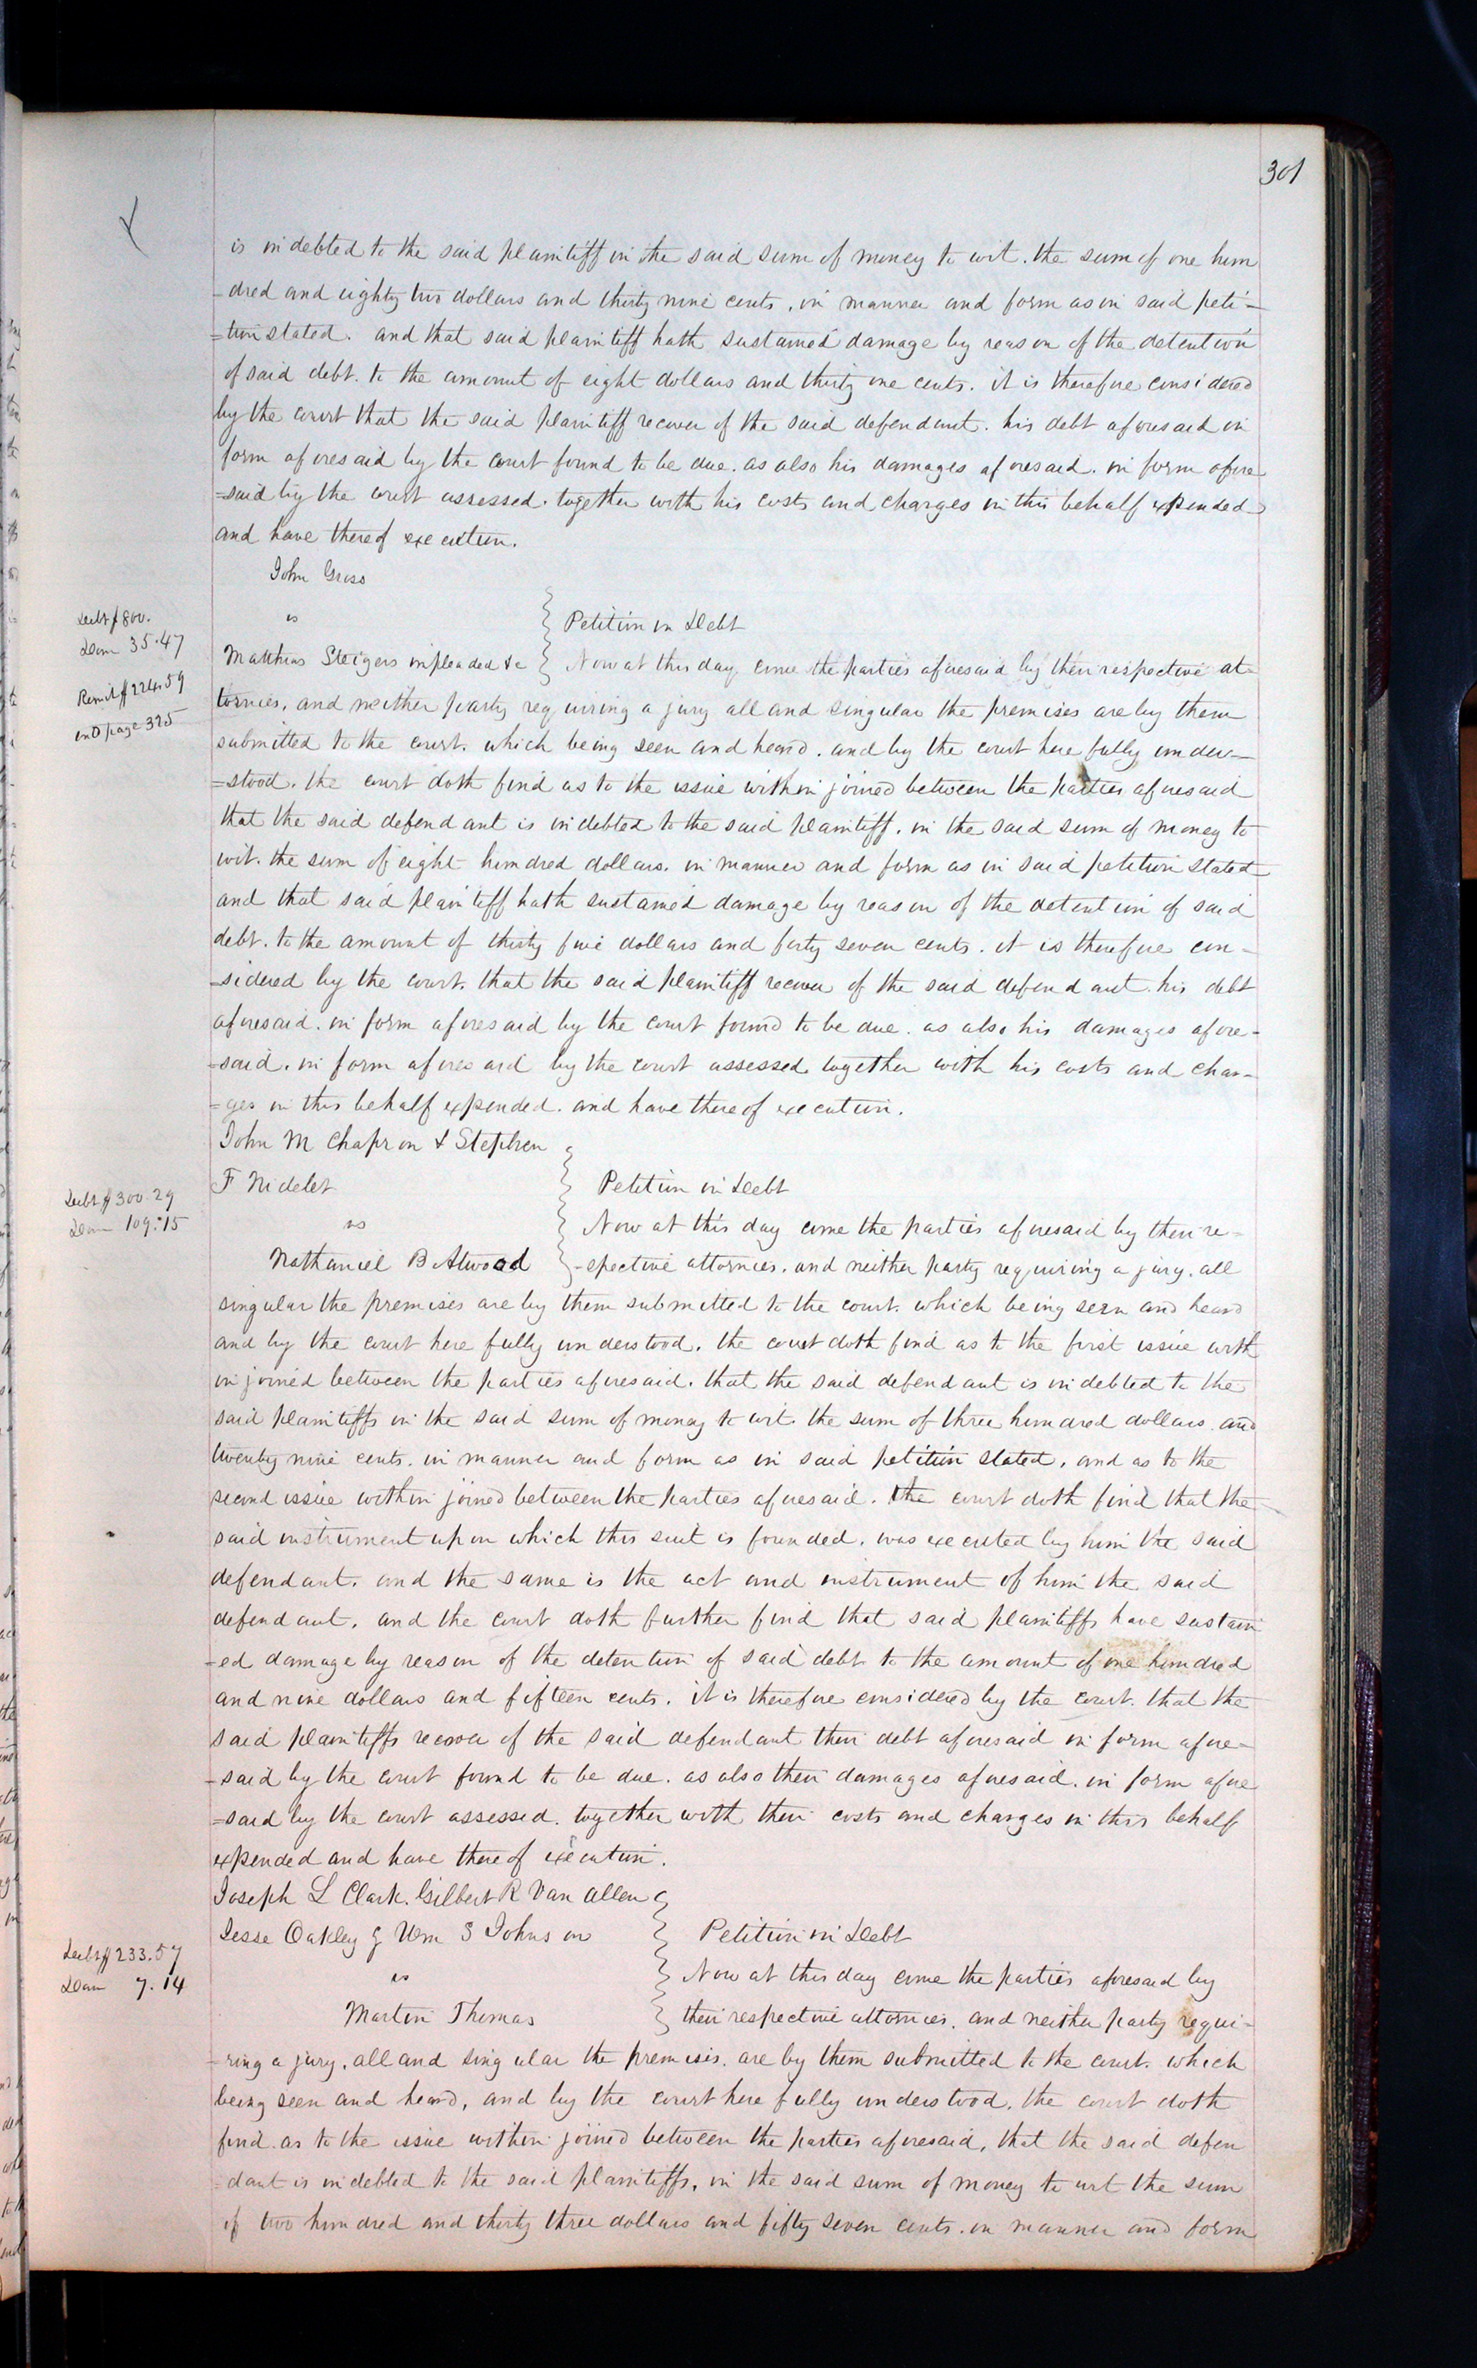 301
is indebted to the said plaintiff in the said sum of money to wit. the sum of one hun
-dred and eighty two dollars and thirty nine cents, in manner and form as in said peti-
=tion stated. and that said plaintiff hath sustained damage by reason of the detention
of said debt. to the amount of eight dollars and thirty one cents. it is therefore considered
by the court that the said plaintiff recover of the said defendant. his debt aforesaid in
form aforesaid by the court found to be due. as also his damages aforesaid. in form afore
=said by the court assessed. together with his costs and charges in this behalf expended
and have thereof execution.
John Gross
vs
Debt $800.
Dam 35.47
Remit $224.59
on D page 325
Petition in Debt
Matthias Steigers impleaded &c Now at this day come the parties aforesaid by their respective at-
tornies, and neither party requiring a jury all and singular the premises are by them
submitted to the court. which being seen and heard. and by the court here fully under-
=stood. the court doth find as to the issue within joined between the parties aforesaid
that the said defendant is indebted to the said plaintiff. in the said sum of money to
wit. the sum of eight hundred dollars. in manner and form as in said petition stated
and that said plaintiff hath sustained damage by reason of the detention of said
debt. to the amount of thirty five dollars and forty seven cents. it is therefore con-
=sidered by the court. that the said plaintiff recover of the said defendant. his debt
aforesaid. in form aforesaid by the court found to be due. as also his damages afore-
=said. in form aforesaid by the court assessed. together with his costs and char-
=ges in this behalf expended. and have thereof execution.
John M Chapron & Stephen
F Nidelet
vs
Nathaniel B. Atwood
Debt $300.29
Dam 109.15
Petition in Debt
Now at this day come the parties aforesaid by their re-
-spective attornies. and neither party requiring a jury. all
singular the premises are by them submitted to the court. which being seen and heard
and by the court here fully understood. the court doth find as to the first issue with
in joined between the parties aforesaid. that the said defendant is indebted to the
said plaintiffs in the said sum of money to wit. the sum of three hundred dollars and
twenty nine cents. in manner and form as in said petition stated. and as to the
second issue within joined between the parties aforesaid. the court doth find that the
said instrument upon which this suit is founded. was executed by him the said
defendant. and the same is the act and instrument of him the said
defendant. and the court doth further find that said plaintiffs have sustain
-ed damage by reason of the detention of said debt to the amount of one hundred
and nine dollars and fifteen cents. it is therefore considered by the court. that the
said plaintiffs recover of the said defendant their debt aforesaid in form afore-
-said by the court found to be due. as also their damages aforesaid. in form afore
=said by the court assessed. together with their costs and charges in this behalf
expended and have thereof execution.
Joseph L Clark. Gilbert R Van Allen
Jesse Oakley & Wm S Johnson
vs
Martin Thomas
Debt $233.57
Dam 7.14
Petition in Debt
Now at this day come the parties aforesaid by
their respective attornies. and neither party requi-
-ring a jury. all and singular the premises. are by them submitted to the court. which
being seen and heard, and by the court here fully understood. the court doth
find. as to the issue within joined between the parties aforesaid, that the said defen
-dant is indebted to the said plaintiffs, in the said sum of money to wit the sum
of two hundred and thirty three dollars and fifty seven cents. in manner and form